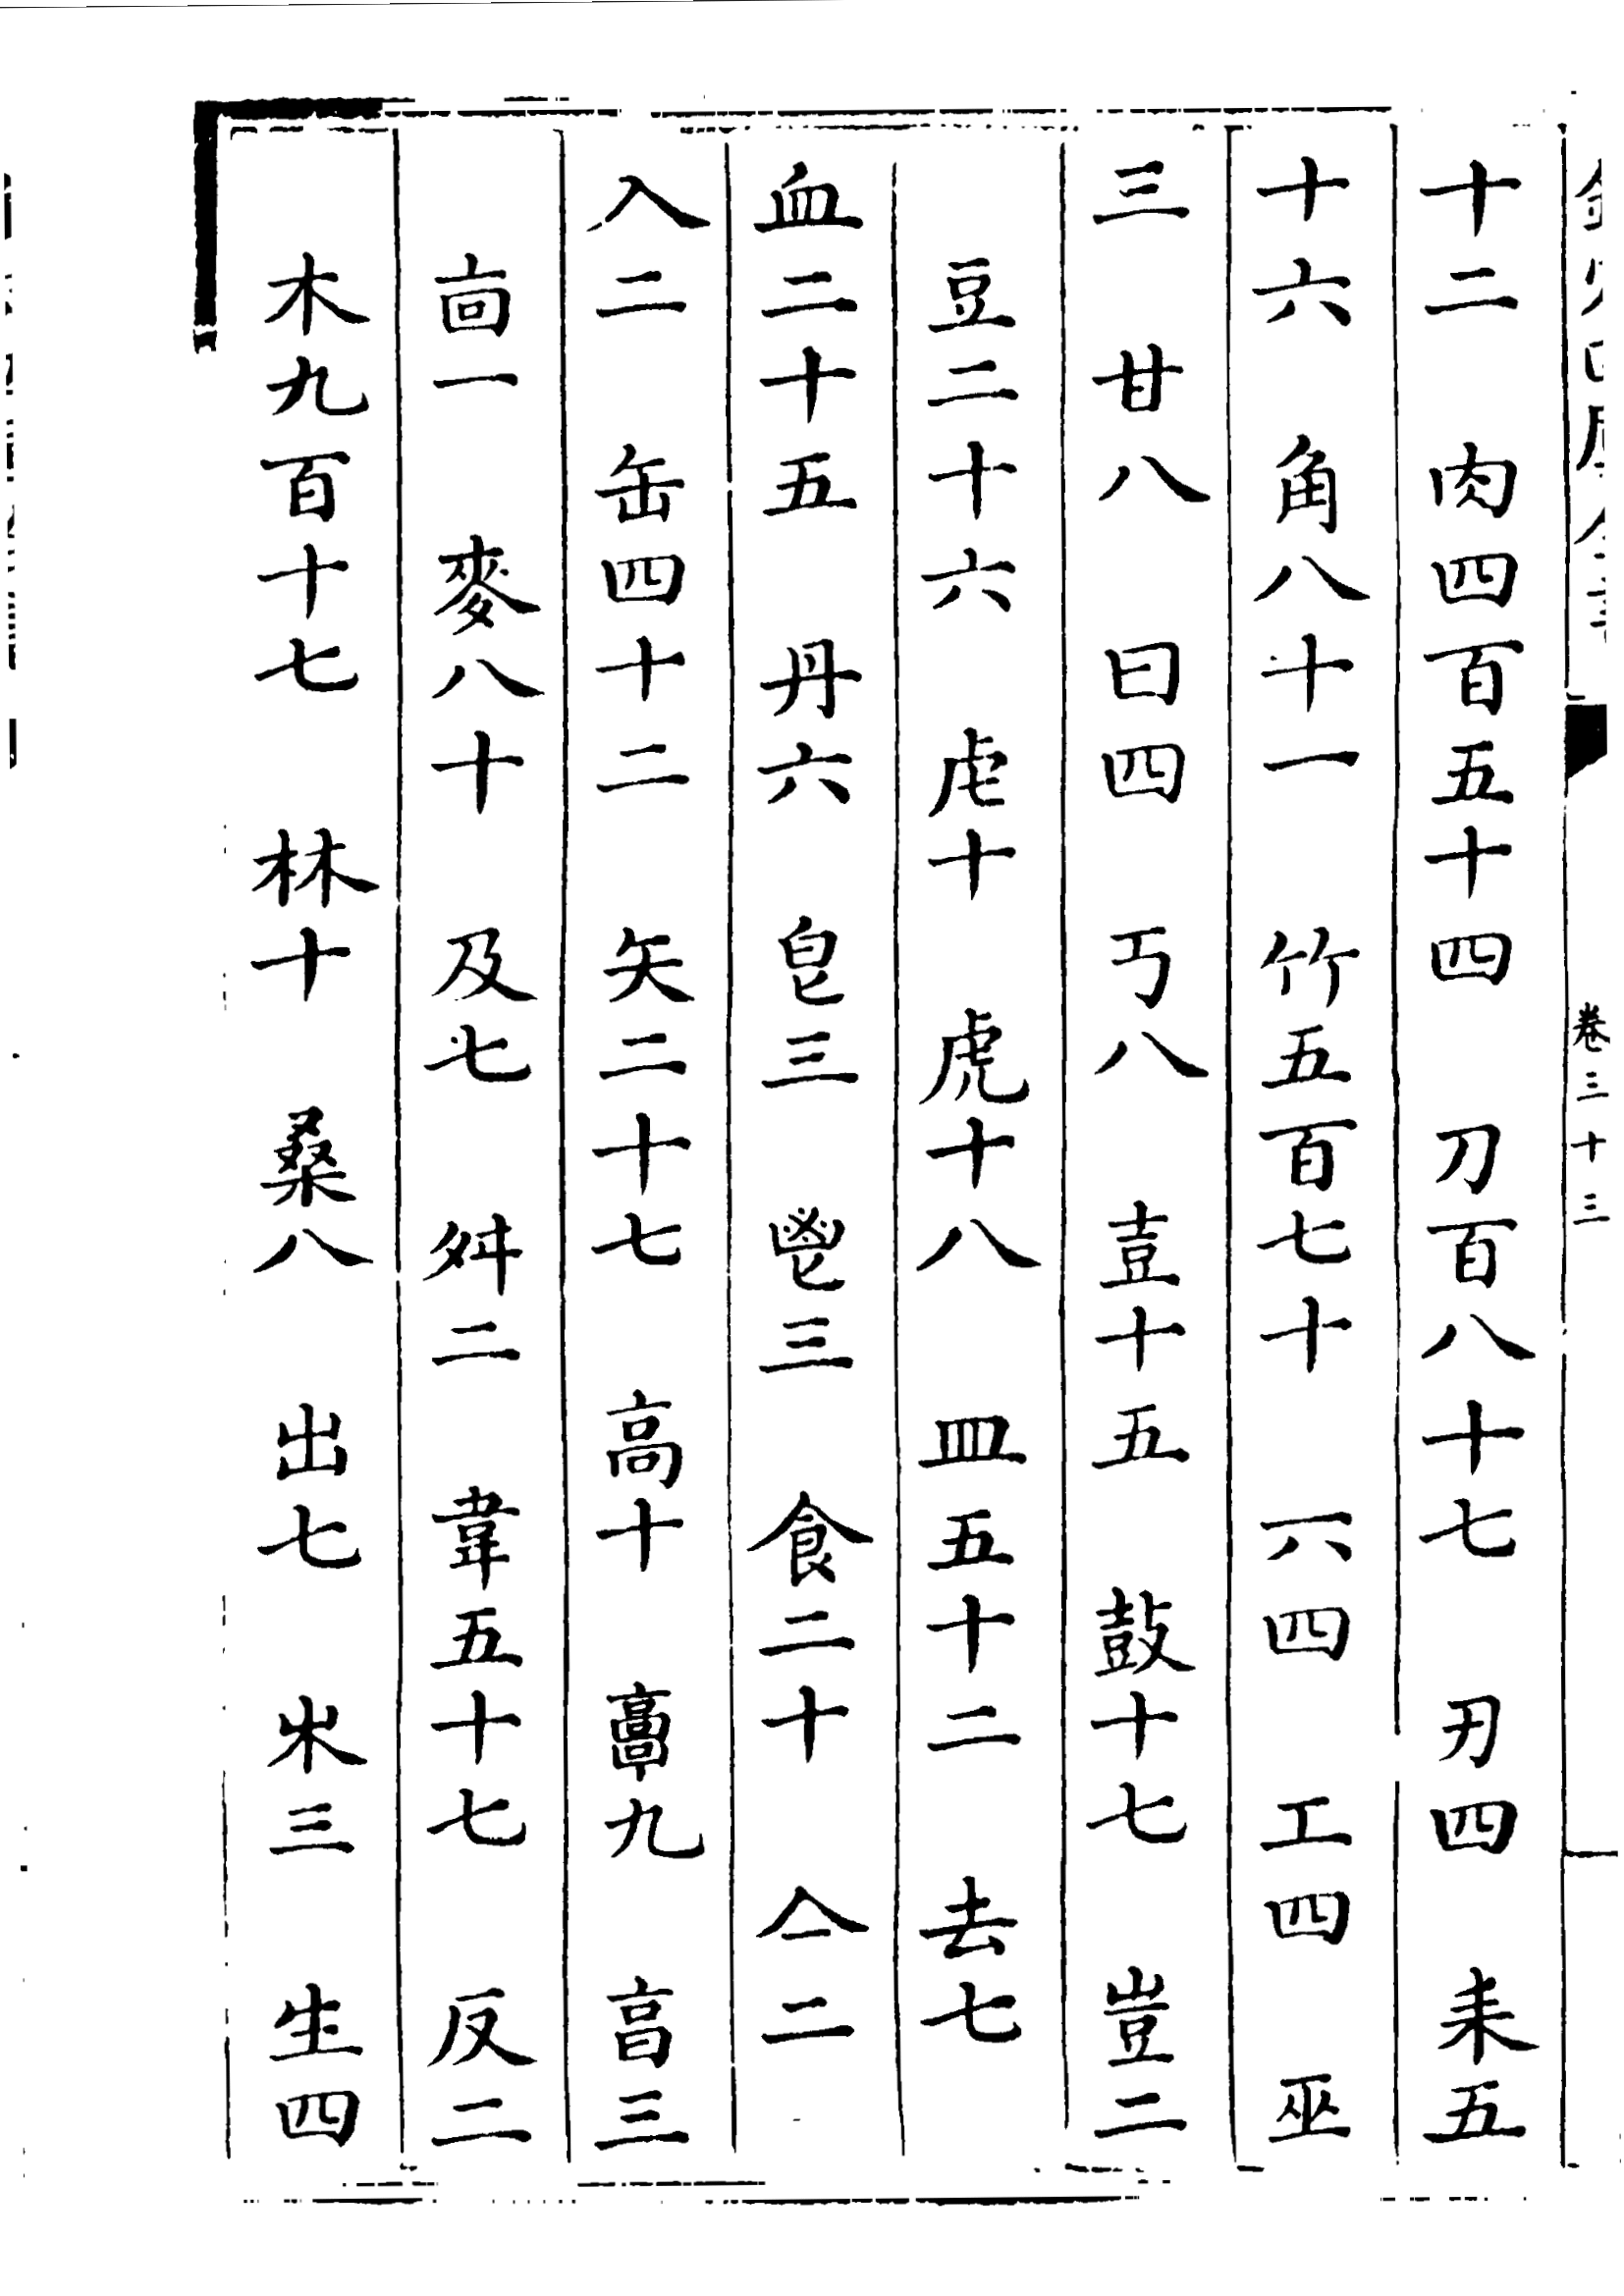 欽定四庫全書
卷三十三
十二　肉四百五十四　刀百八十七　刃四　耒五
十六　角八十一　竹五百七十　丌四　工四　巫
三　甘八　曰四　丂八　壴十五　鼓十七　豈二
豆二十六　虍十　虎十八　皿五十二　去七
血二十五　丹六　皀三　鬯三　食二十　亼二
入二　缶四十二　矢二十七　高十　𩫖九　㫗三
㐭一　麥八十　及七　舛二　韋五十七　反二
木九百十七　林十　桑八　出七　朩三　生四